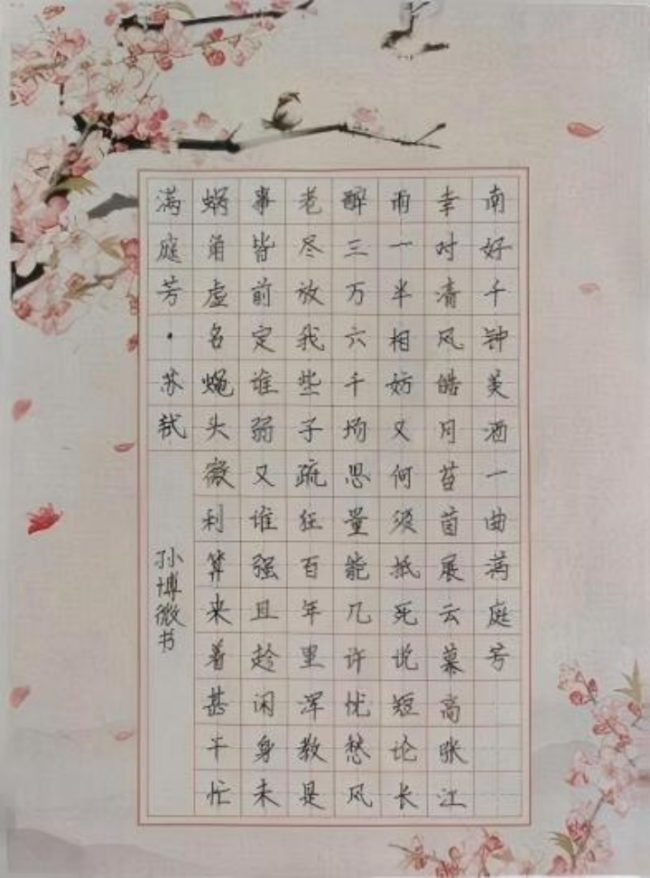 满庭芳·苏轼
孙博微书
蜗角虚名蝇头微利算来着甚干忙
事皆前定谁弱又谁强且趁闲身未
老尽放我些子疏狂百年里浑教是
醉三万六千场思量能几许忧愁风
雨一半相妨又何须抵死说短论长
幸对清风皓月苔茵展云幕高张江
南好千钟美酒一曲满庭芳